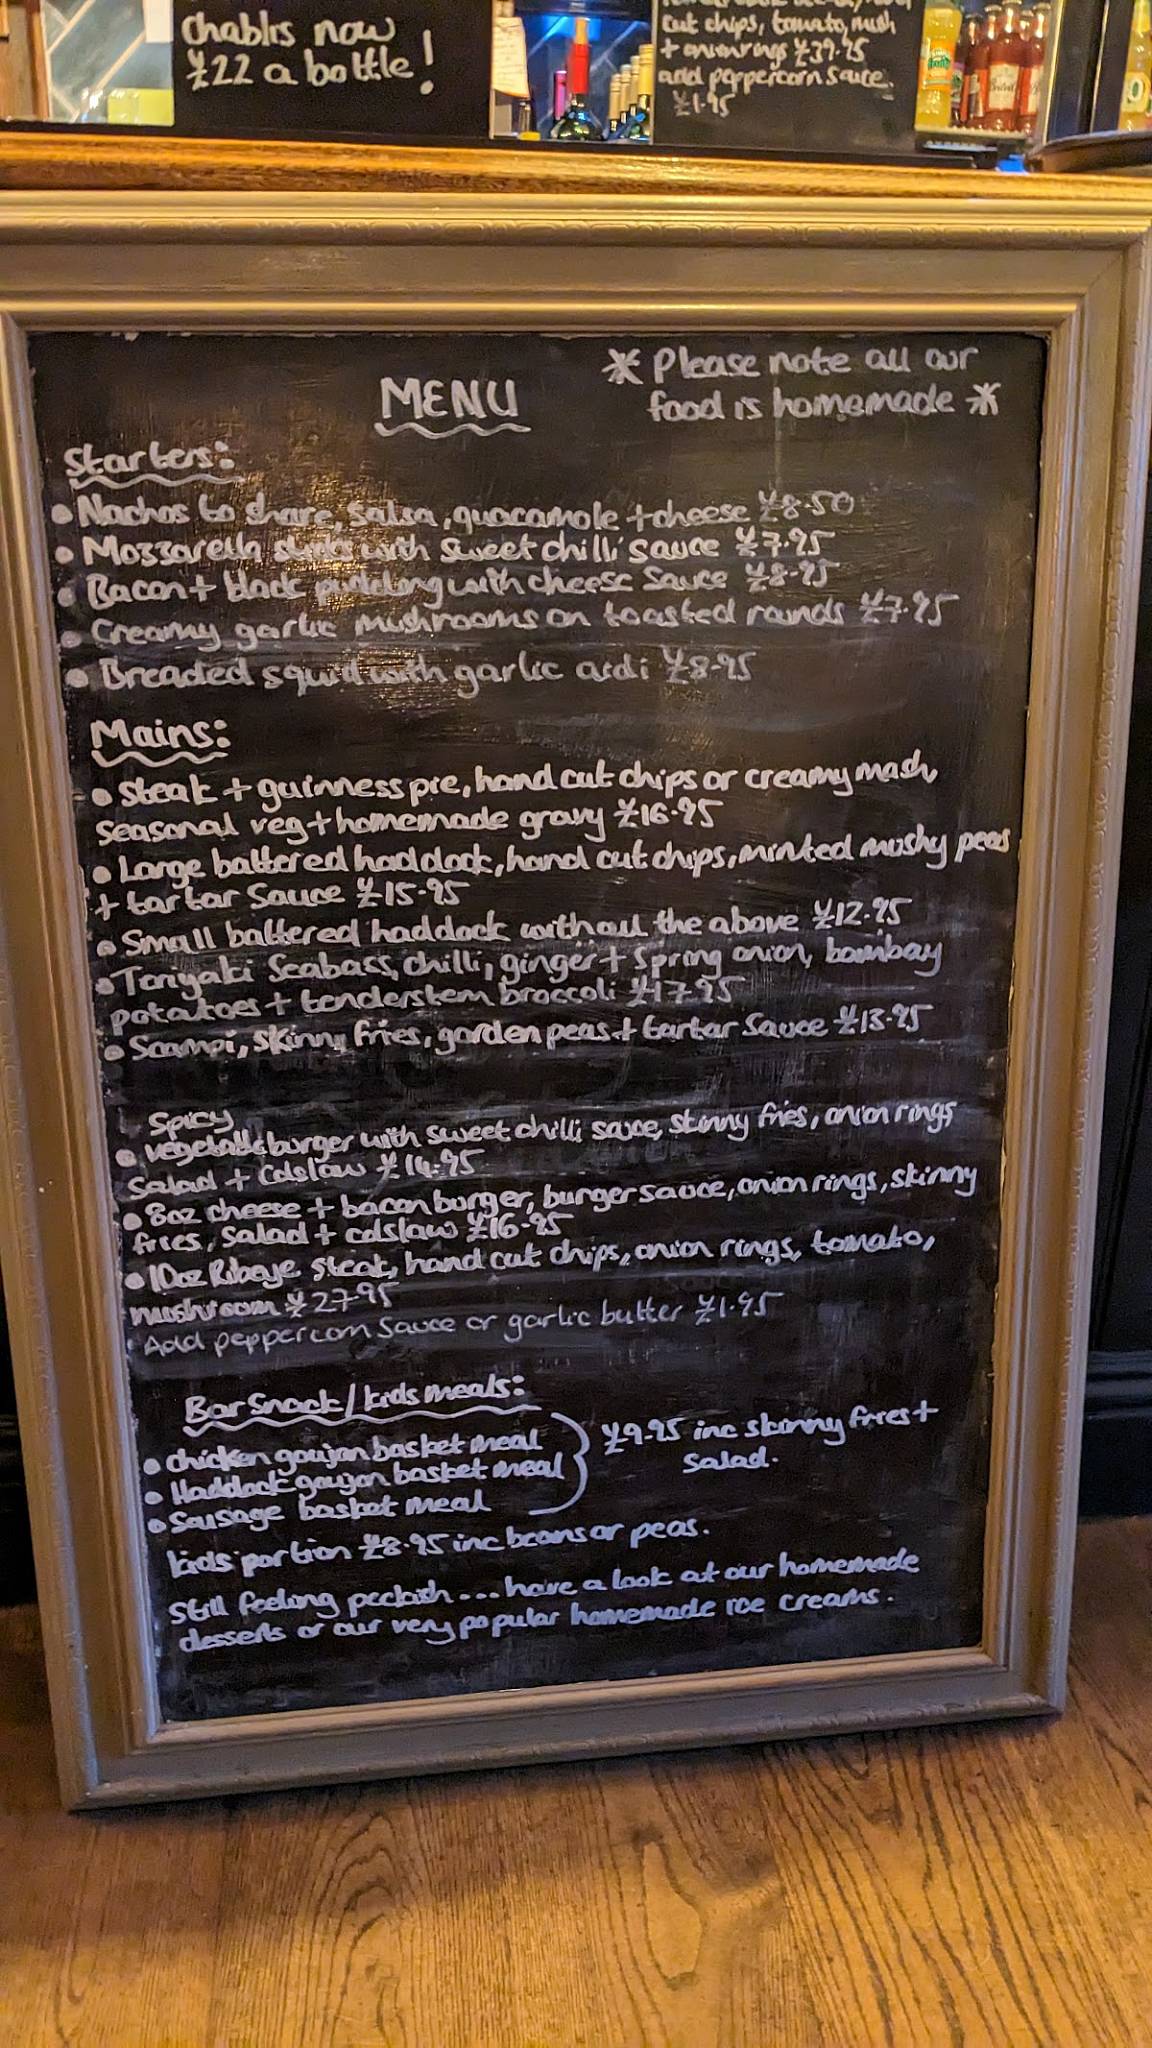 Chablis now
£22 a bottle!
cut chips, tomato, mush
+ onion rings £39.95
add peppercorn sauce
£1.95
MENU
* Please note all our
food is homemade *
Starters:
• Nachos to share, salsa, guacamole + cheese £8.50
• Mozzarella sticks with sweet chilli sauce £7.95
• Bacon + black pudding with cheese sauce £8.95
• Creamy garlic mushrooms on toasted rounds £7.95
• Breaded squid with garlic aioli £8.95
Mains:
• Steak + guinness pie, hand cut chips or creamy mash,
seasonal veg + homemade gravy £16.95
• Large battered haddock, hand cut chips, minted mushy peas
+ tartar sauce £15.95
• Small battered haddock without the above £12.95
• Teriyaki Seabass, chilli, ginger + spring onion, bombay
potatoes + tenderstem broccoli £17.95
• Scampi, skinny fries, garden peas + tartar sauce £13.95
Spicy
• vegetable burger with sweet chilli sauce, skinny fries, onion rings,
Salad + Coleslaw £14.95
• 8oz cheese + bacon burger, burger sauce, onion rings, skinny
fries, salad + coleslaw £16.95
• 10oz Ribeye steak, hand cut chips, onion rings, tomato,
mushroom £27.95
• Add peppercorn sauce or garlic butter £1.95
Bar Snack / kids meals:
• chicken goujon basket meal
• Haddock goujon basket meal
• Sausage basket meal
£9.95 inc skinny fries +
salad.
kids portion £8.95 inc beans or peas.
Still feeling peckish... have a look at our homemade
desserts or our very popular homemade ice creams.